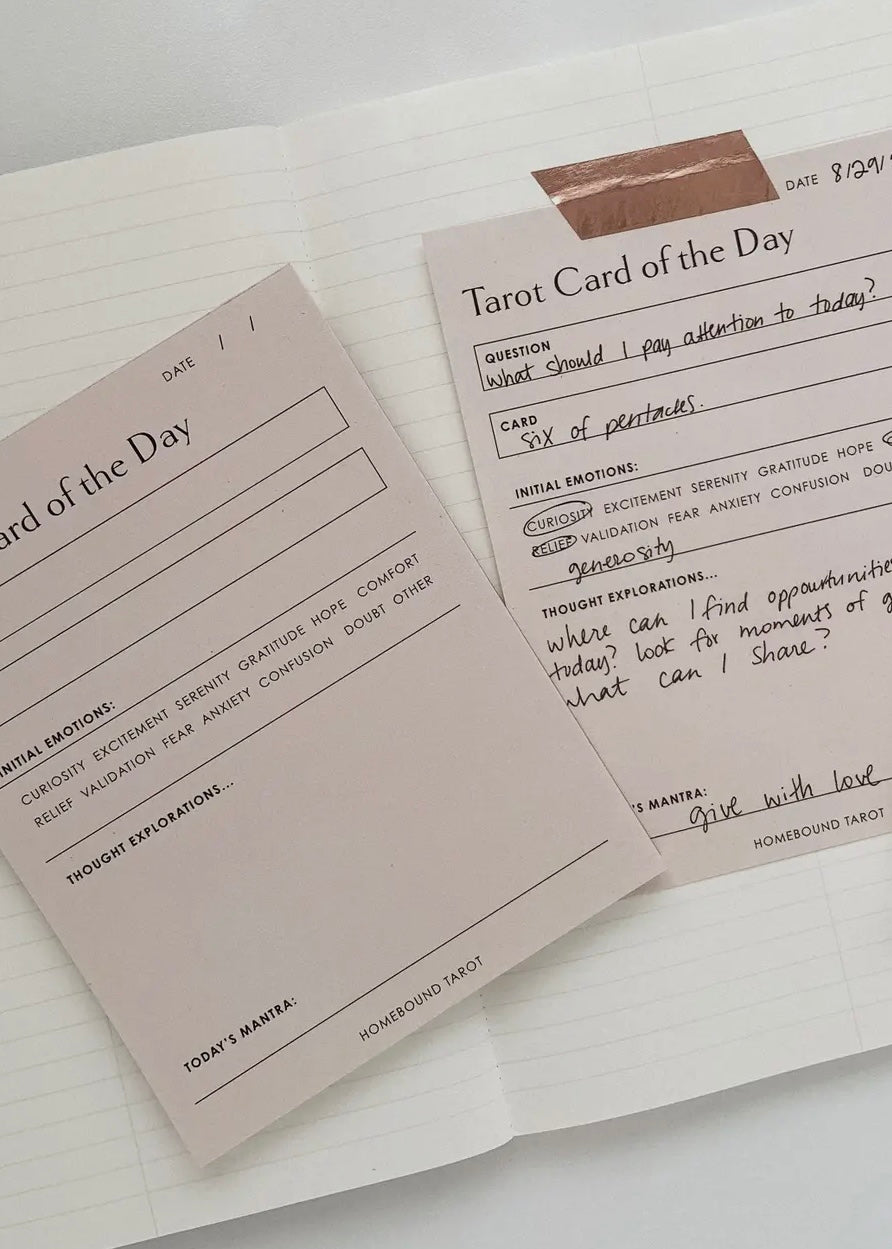 DATE / /
Card of the Day
INITIAL EMOTIONS:
CURIOSITY EXCITEMENT SERENITY GRATITUDE HOPE COMFORT
RELIEF VALIDATION FEAR ANXIETY CONFUSION DOUBT OTHER
THOUGHT EXPLORATIONS...
TODAY'S MANTRA:
HOMEBOUND TAROT
DATE 8/29/
Tarot Card of the Day
QUESTION
what should I pay attention to today?
CARD
six of pentacles.
INITIAL EMOTIONS:
CURIOSITY EXCITEMENT SERENITY GRATITUDE HOPE
RELIEF VALIDATION FEAR ANXIETY CONFUSION DOU
generosity
THOUGHT EXPLORATIONS...
where can I find oppourtunities
today? look for moments of g
what can I share?
'S MANTRA:
give with love
HOMEBOUND TAROT